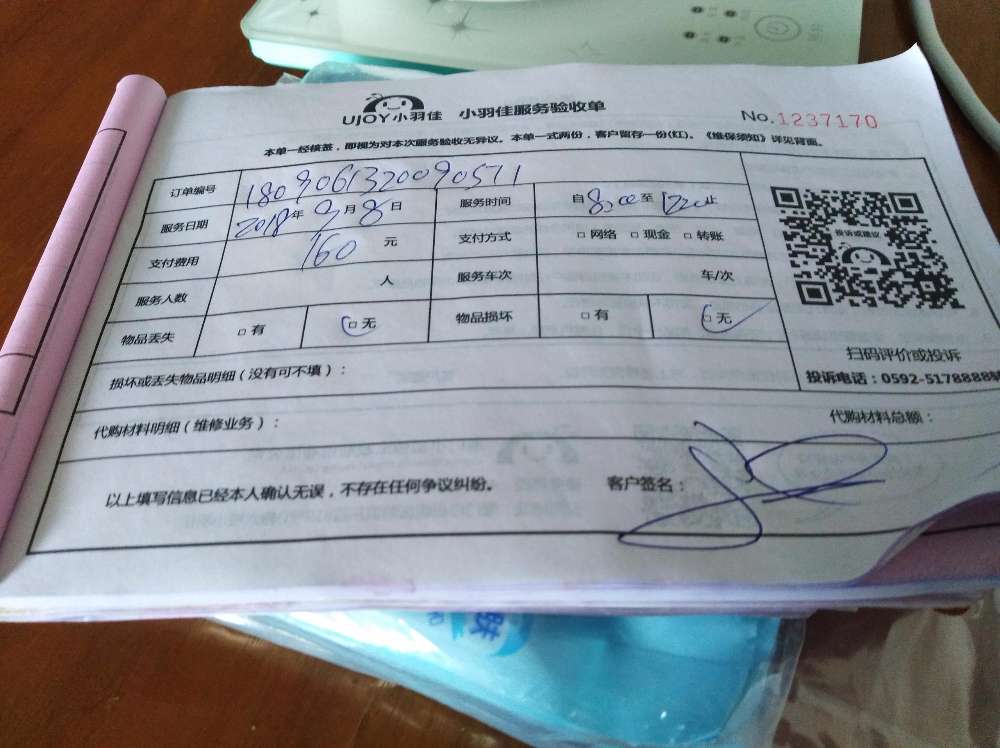 UJOY小羽佳 小羽佳服务验收单
No.1237170
本单一经核签，即视为对本次服务验收无异议。本单一式两份，客户留存一份(红)。《维保须知》详见背面。
订单编号 1809061320090571
服务日期 2018年 9月 8日 服务时间 自8:00至12:00止
支付费用 160 元 支付方式 □ 网络 □ 现金 □ 转账
服务人数 人 服务车次 车/次
物品丢失 □ 有 □ 无 物品损坏 □ 有 □ 无
投诉或建议
扫码评价或投诉
投诉电话：0592-5178888
损坏或丢失物品明细（没有可不填）：
代购材料明细（维修业务）： 代购材料总额：
以上填写信息已经本人确认无误，不存在任何争议纠纷。 客户签名：
肤